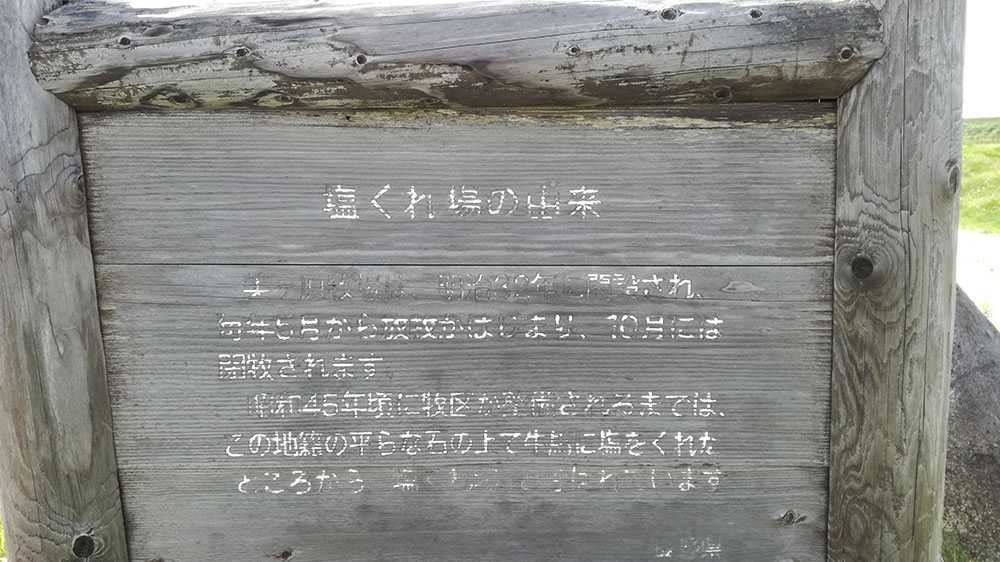 塩くれ場の由来
美ヶ原牧場は、明治 年に開設され、
毎年5月から放牧がはじまり、10月には
閉牧されます。
昭和45年頃に牧区が整備されるまでは、
この地籍の平らな石の上で牛馬に塩をくれた
ところから 塩くれ場 と れています
長野県